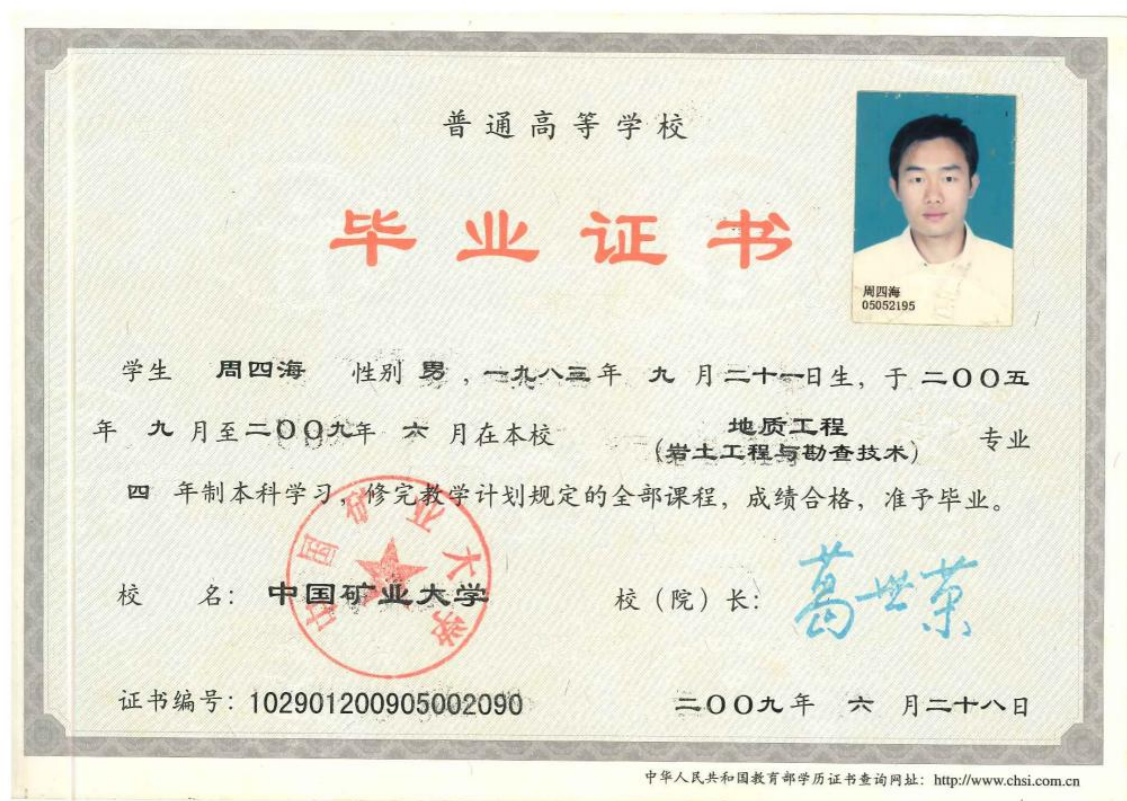 普通高等学校
毕业证书
周四海
05052195
学生 周四海 性别 男，一九八三年 九 月二十一日生，于 二〇〇五
年 九 月至二〇〇九年 六 月在本校 地质工程 专业
(岩土工程与勘查技术)
四 年制本科学习，修完教学计划规定的全部课程，成绩合格，准予毕业。
中国矿业大学
校 名：中国矿业大学 校（院）长：葛世荣
证书编号：102901200905002090 二〇〇九年 六 月二十八日
中华人民共和国教育部学历证书查询网址：http://www.chsi.com.cn